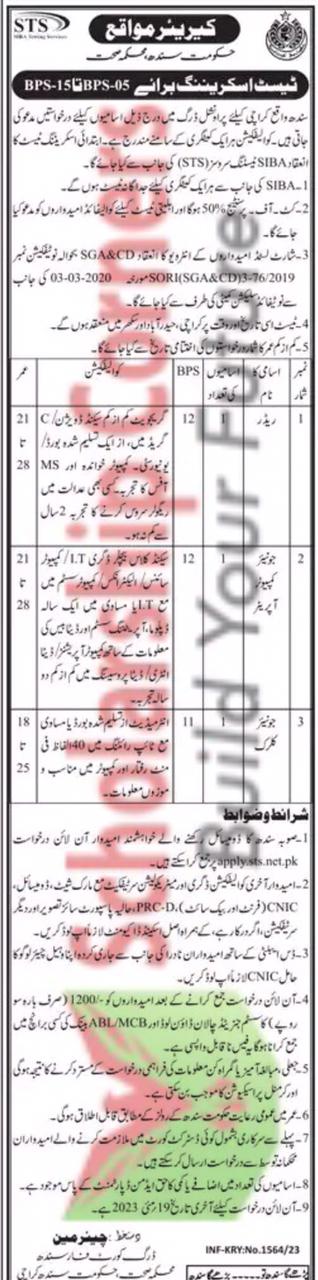 STS
SIBA Testing Services
کیریئر مواقع
حکومت سندھ، محکمہ صحت
ٹیسٹ اسکریننگ برائے BPS-05 تا BPS-15
سندھ واقع کراچی کیلئے پراونشل ڈرگ میں درج ذیل اسامیوں کیلئے درخواستیں مدعو کی
جاتی ہیں۔ کوالیفکیشن ہر ایک کیٹگری کے سامنے مندرج ہے۔ ابتدائی اسکریننگ ٹیسٹ کا
انعقاد SIBA ٹیسٹنگ سروسز (STS) کی جانب سے کیا جائے گا۔
1۔ SIBA کی جانب سے ہر ایک کیٹگری کیلئے جداگانہ ٹیسٹ ہوں گے۔
2۔ کٹ۔ آف۔ پرسنٹیج 50% ہوگا اور اہلیتی ٹیسٹ کیلئے کوالیفائڈ امیدواروں کو مدعو کیا
جائے گا۔
3۔ شارٹ لسٹڈ امیدواروں کے انٹرویو کا انعقاد SGA&CD بحوالہ نوٹیفکیشن نمبر
SORI(SGA&CD)3-76/2019 مورخہ 03-03-2020 کی جانب
سے نوٹیفائڈ سلیکشن کمیٹی کی طرف سے کیا جائے گا۔
4۔ ٹیسٹ اسی تاریخ اور وقت پر کراچی، حیدرآباد اور سکھر میں منعقد ہوں گے۔
5۔ کم از کم عمر کا شمار درخواستوں کی اختتامی تاریخ سے کیا جائے گا۔
نمبر شمار | اسامی کا نام | اسامیوں کی تعداد | BPS | کوالیفکیشن | عمر
1 | ریڈر | 1 | 12 | گریجویٹ کم از کم سیکنڈ ڈویژن / C | 21
گریڈ میں، از ایک تسلیم شدہ بورڈ / | تا
یونیورسٹی۔ کمپیوٹر خواندہ اور MS | 28
آفس کا تجربہ۔ کسی بھی عدالت میں
ریگولر سروس کرنے کا تجربہ 2 سال
سے کم نہ ہو۔
2 | جونیئر کمپیوٹر آپریٹر | 1 | 12 | سیکنڈ کلاس بیچلر ڈگری I.T / کمپیوٹر | 21
سائنس / الیکٹرانکس / کمپیوٹر سسٹم میں | تا
مع I.T یا مساوی میں ایک سالہ | 28
ڈپلوما، آپریٹنگ سسٹم اور ڈیٹا بیس کی
معلومات کے ساتھ کمپیوٹر آپریشنز / ڈیٹا
انٹری / ڈیٹا پروسیسنگ میں کم از کم دو
سالہ تجربہ۔
3 | جونیئر کلرک | 1 | 11 | انٹرمیڈیٹ از تسلیم شدہ بورڈ یا مساوی | 18
مع ٹائپ رائٹنگ میں 40 الفاظ فی | تا
منٹ رفتار اور کمپیوٹر میں مناسب و | 25
موزوں معلومات۔
شرائط و ضوابط
1۔ صوبہ سندھ کا ڈومیسائل رکھنے والے خواہشمند امیدوار آن لائن درخواست
apply.sts.net.pk پر جمع کراسکتے ہیں۔
2۔ امیدوار آخری کوالیفکیشن ڈگری اور میٹریکولیشن سرٹیفکیٹ مع مارک شیٹ، ڈومیسائل،
CNIC (فرنٹ اور بیک سائٹ)، PRC-D، حالیہ پاسپورٹ سائز تصویر اور دیگر
سرٹیفکیشن، اگر درکار ہے، کے ہمراہ اصل اسکینڈ ڈاکیومنٹ لازماً اپ لوڈ کریں۔
3۔ ڈس ایبلٹی کے ساتھ امیدواران نادرا کی جانب سے جاری کردہ اپنا وہیل چیئر لوگو کا
حامل CNIC لازماً اپ لوڈ کریں۔
4۔ آن لائن درخواست جمع کرانے کے بعد امیدواروں کو -/1200 (صرف بارہ سو
روپے) کا سسٹم جنریٹڈ چالان ڈاؤن لوڈ اور ABL/MCB بینک کی کسی برانچ میں
جمع کرانا ہوگا یہ فیس ناقابل واپسی ہے۔
5۔ جعلی، مبالغہ آمیز یا گمراہ کن معلومات کی فراہمی درخواست کے مسترد کرنے کا نتیجہ ہوگی
اور کرمنل پراسیکیوشن کا موجب بن سکتی ہے۔
6۔ عمر میں عمومی رعایت حکومت سندھ کے رولز کے مطابق قابل اطلاق ہوگی۔
7۔ پہلے سے سرکاری بشمول کوئی ڈسٹرکٹ کورٹ میں ملازمت کرنے والے امیدواران
محکمانہ توسط سے درخواست ارسال کرسکتے ہیں۔
8۔ اسامیوں کی تعداد میں اضافے یا کمی کا حق ایڈمن ڈپارٹمنٹ کے پاس موجود ہے۔
9۔ آن لائن درخواست کیلئے آخری تاریخ 19 مئی 2023 ہے۔
دستخط: چیئرمین
ڈرگ کورٹ فار سندھ
محکمہ صحت، حکومت سندھ کراچی
INF-KRY: No.1564/23
Scholarship Corner
Build Your Future